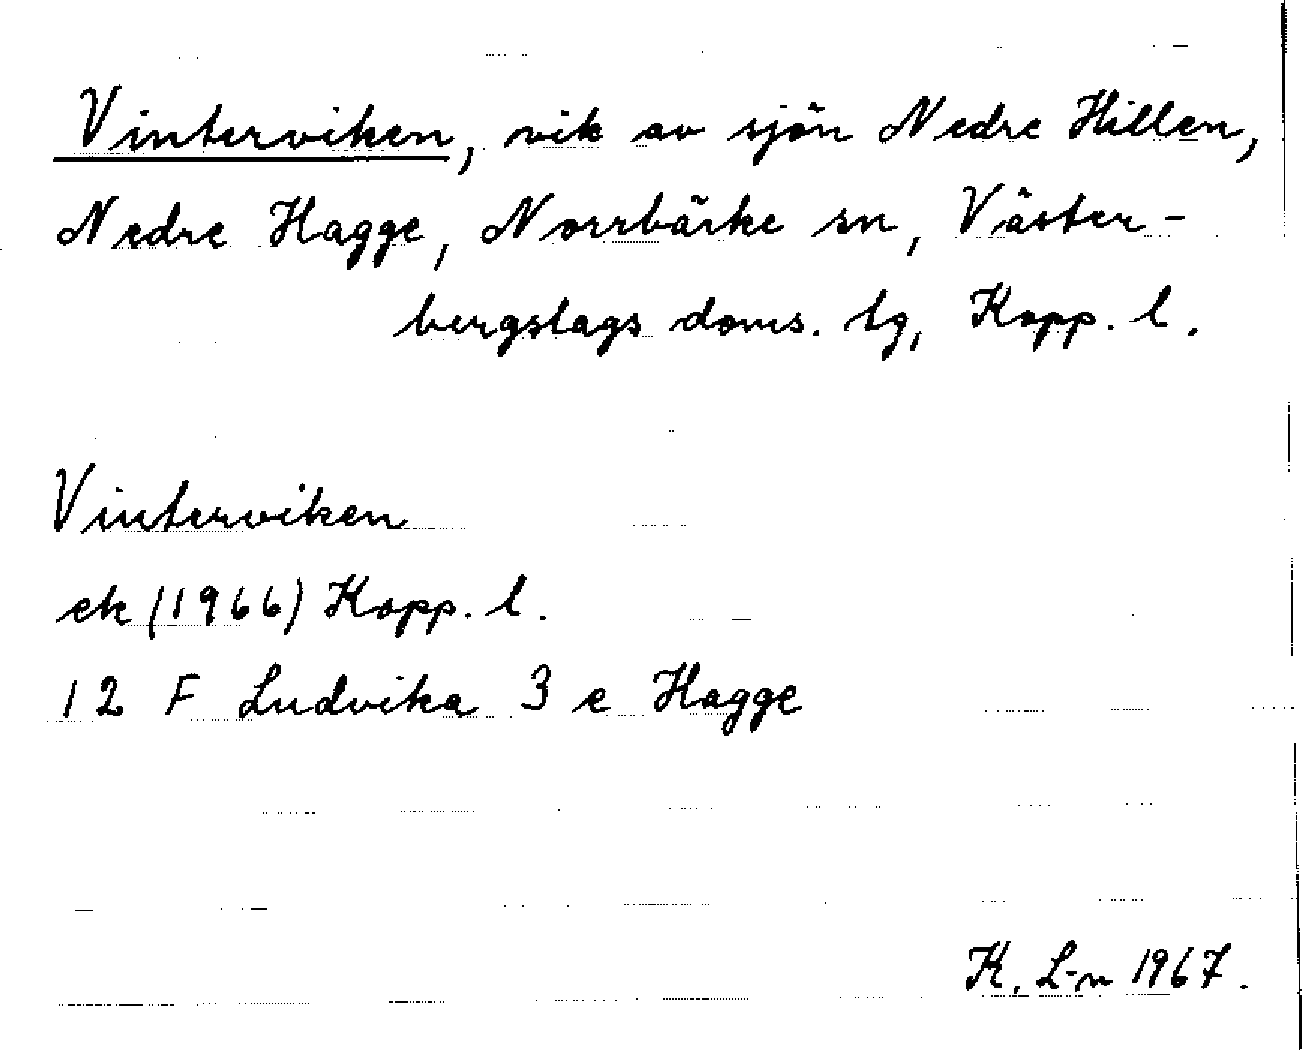 Vinterviken, vik av sjön Nedre Hillen,
Nedre Hagge, Norrbärke sn, Väster-
bergslags doms. tg, Kopp. l.
Vinterviken
ek (1966) Kopp. l.
12 F Ludvika 3 e Hagge
K. L-n 1967.